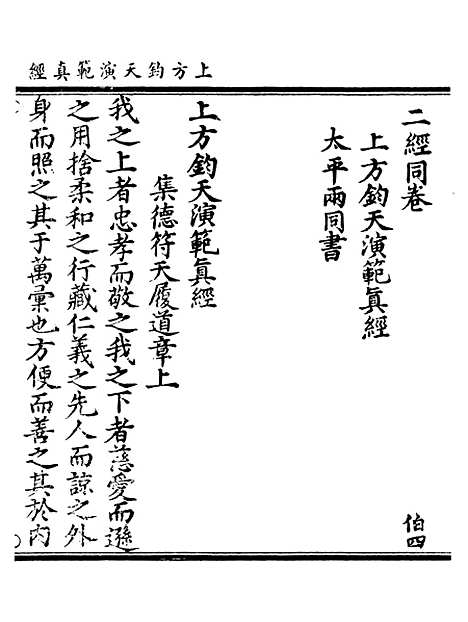 上方鈞天演範真經
二經同卷
上方鈞天演範真經
太平兩同書
伯四
上方鈞天演範真經
集德符天履道章上
我之上者忠孝而敬之我之下者慈愛而遜
之用捨柔和之行藏仁義之先人而諒之外
身而照之其于萬彙也方便而善之其於內